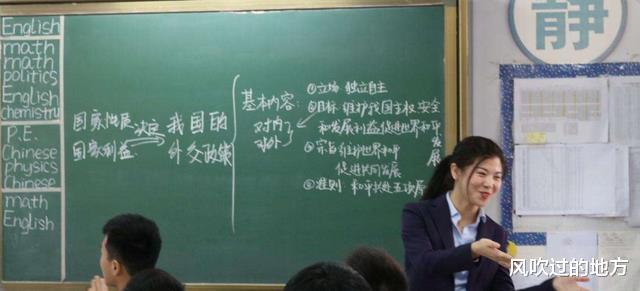 English
math
math
politics
English
chemistry
P.E.
Chinese
physics
Chinese
math
English
国家性质
国家利益
决定
我国的
外交政策
基本内容:
对内
对外
①立场 独立自主
②目标 维护我国主权 安全
和发展利益 促进世界和平
发展
③宗旨 维护世界和平
促进共同发展
④准则: 和平共处五项原
静
风吹过的地方